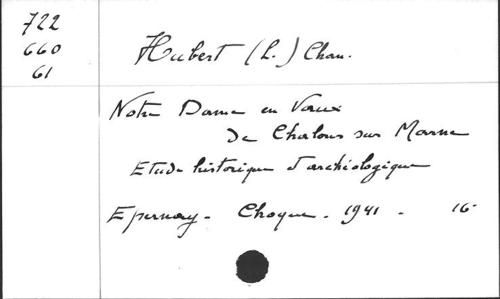 722
660
61
Hubert (L.) Chan.
Notre Dame en Vaux
de Chalons sur Marne
Etude historique d'archéologique
Epernay - Choque - 1941 - 16°